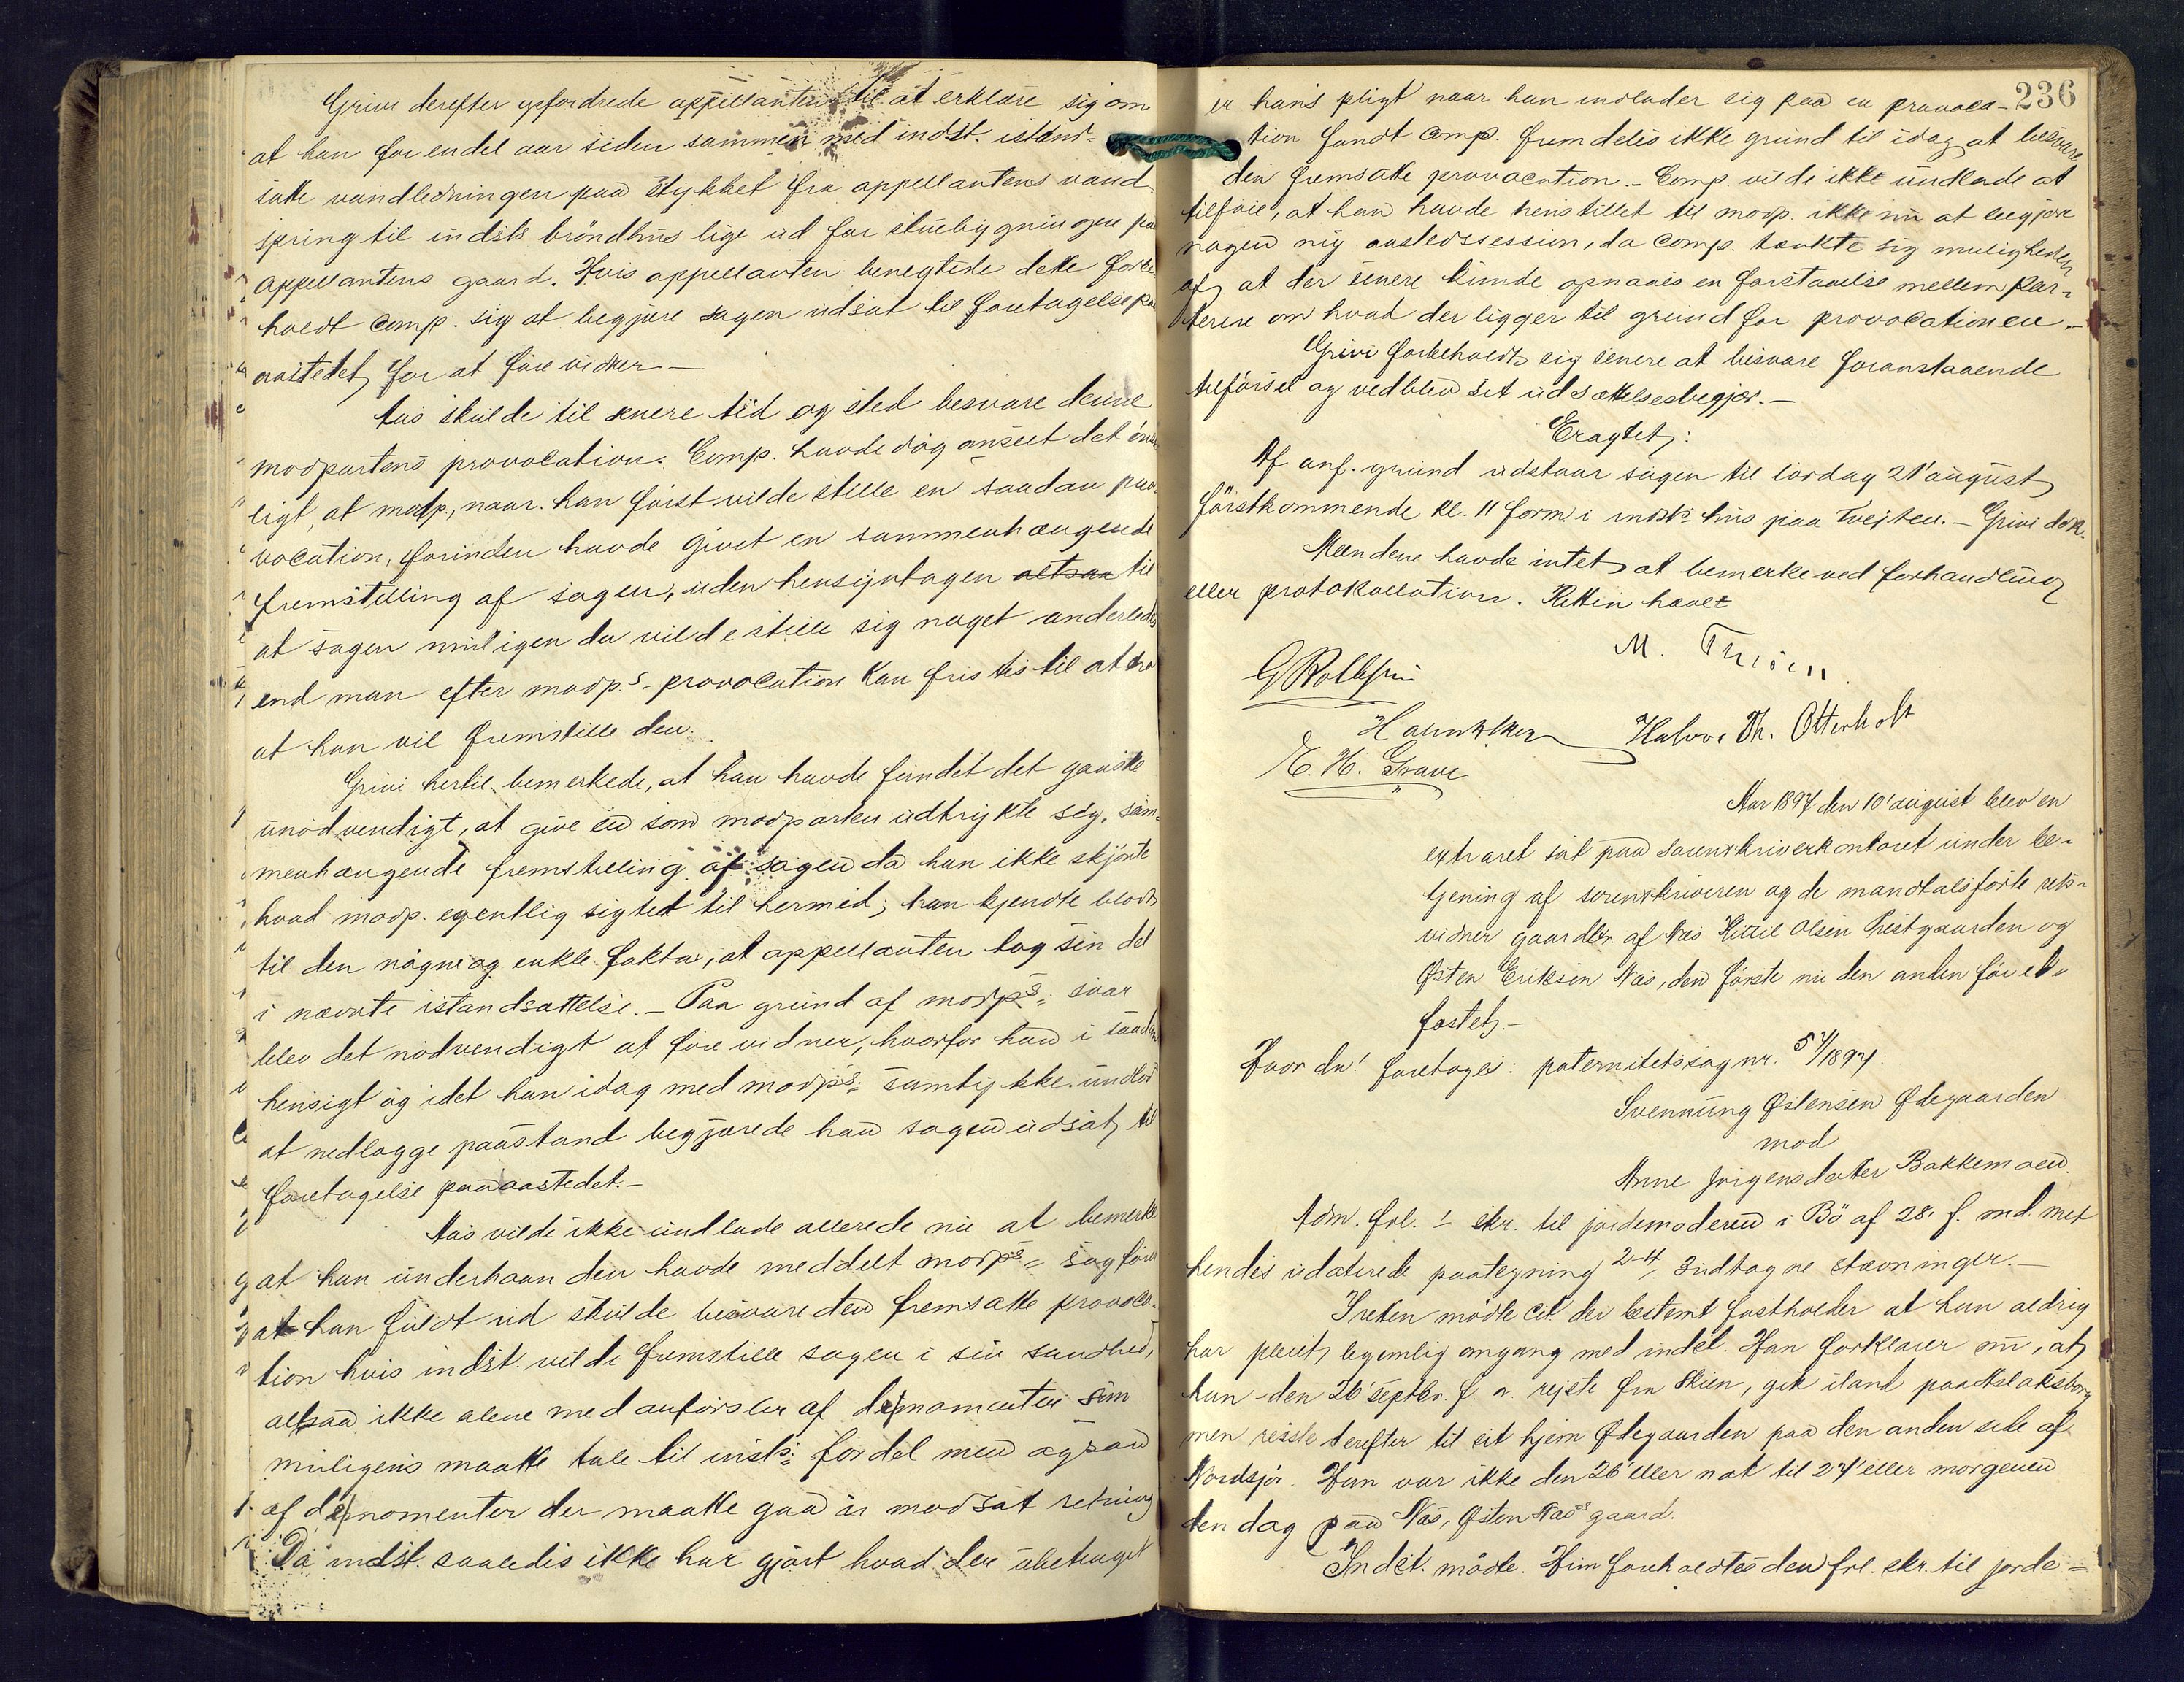 Grivi derefter opfordrede appellanten til at erklære sig om
at han for endel aar siden sammen med indst. istand-
satte vandledningen paa Stykket fra appellantens vand
spring til indsts bröndhus lige ud for stuebygningen paa
appellantens gaard. Hvis appellanten benegtede dette forbe
holdt Comp. sig at begjære sagen udsat til foretagelse paa
aastedet for at före vidner. —
Aas skulde til senere tid og sted besvare denne
modpartens provocation. Comp. havde dog anseet det önske
ligt, at modp., naar han först vilde stille en saadan pro-
vocation, forinden havde givet en sammenhængende
fremstilling af sagen, uden hensyntagen altsaa til
at sagen muligen da vilde stille sig noget anderledes
end man efter modp.s provocation kan fristes til at tro
at han vil fremstille den.
Grivi hertil bemerkede, at han havde fundet det ganske
unödvendigt, at give en som modparten udtrykte sig, sam-
menhængende fremstilling af sagen da han ikke skjönte
hvad modp. egentlig sigted til hermed; han kjendte blodt
til den nögne og enkle fakta, at appellanten tog sin del
i nævnte istandsættelse. — Paa grund af modps: svar
blev det nödvendigt at före vidner, hvorfor han i saadan
hensigt og idet han idag med modps: samtykke undlod
at nedlægge paastand begjærede han sagen udsat til
foretagelse paa aastedet. —
Aas vilde ikke undlade allerede nu at bemerke
at han underhaanden havde meddelt modps: sagförer
at han fuldt ud skulde besvare den fremsatte provoca-
tion hvis indst. vilde fremstille sagen i sin sandhed,
altsaa ikke alene med anförsler af de momenter som
muligens maatte tale til insts: fordel men ogsaa
af de momenter der maatte gaa in modsat retning
Da indst. saaledis ikke har gjort hvad der ubetinget
236
er hans pligt naar han indlader sig paa en provoca-
tion fandt Comp. fremdeles ikke grund til idag at besvare
den fremsatte provocation. — Comp. vilde ikke undlade at
tilföie, at han havde henstillet til modp. ikke nu at begjære
nogen ny aastedssession, da Comp. tænkte sig muligheden
af at der senere kunde opnaaes en forstaaelse mellem par-
terne om hvad der ligger til grund for provocationen. —
Grivi forbeholdt sig senere at besvare foranstaaende
tilförsel og vedblev sit udsættelsesbegjær. —
Eragtet:
Af anf. grund udstaar sagen til lördag 21' august
förstkommende kl. 11 form. i indsts: hus paa Tvejten. — Grivi dok.
Mændene havde intet at bemerke ved forhandling
eller protokollation. Retten hævet
M. Thrisen
G Rolfsen
Halvor Th. Otterholt
E. H. Grave
Aar 1897 den 10' august blev en
extraret sat paa sorenskriverkontoret under be-
tjening af sorenskriveren og de mandtalsförte rets-
vidner gaardbr. af Næs Kittil Olsen Prestgaarden og
Østen Eriksen Næs, den förste nu den anden för ed-
fæstet. —
Hvor da! foretoges: paternitetssag nr. 57/1897:
Svennung Østensen Ødegaarden
mod
Anne Jörgensdatter Bakkemoen.
Adm. frl. 1 skr. til jordemoderen i Bö af 28. f. md. med
hendes udaterede paategning 2-4/. 3 udtagne stævninger. —
I retten mödte cit. der bestemt fastholder at han aldrig
har pleiet legemlig omgang med indst. Han forklarer nu, at
han den 26' septbr. f. a. rejste fra Skien, gik iland paa Akslaksborg
men reiste derefter til sit hjem Ødegaarden paa den anden side af
Nordsjö. Han var ikke den 26' eller nat til 27' eller morgenen
den dag paa Næs, Østen Næs's gaard.
Indst. mödte. Him foreholdtes den frl. skr. til jorde-